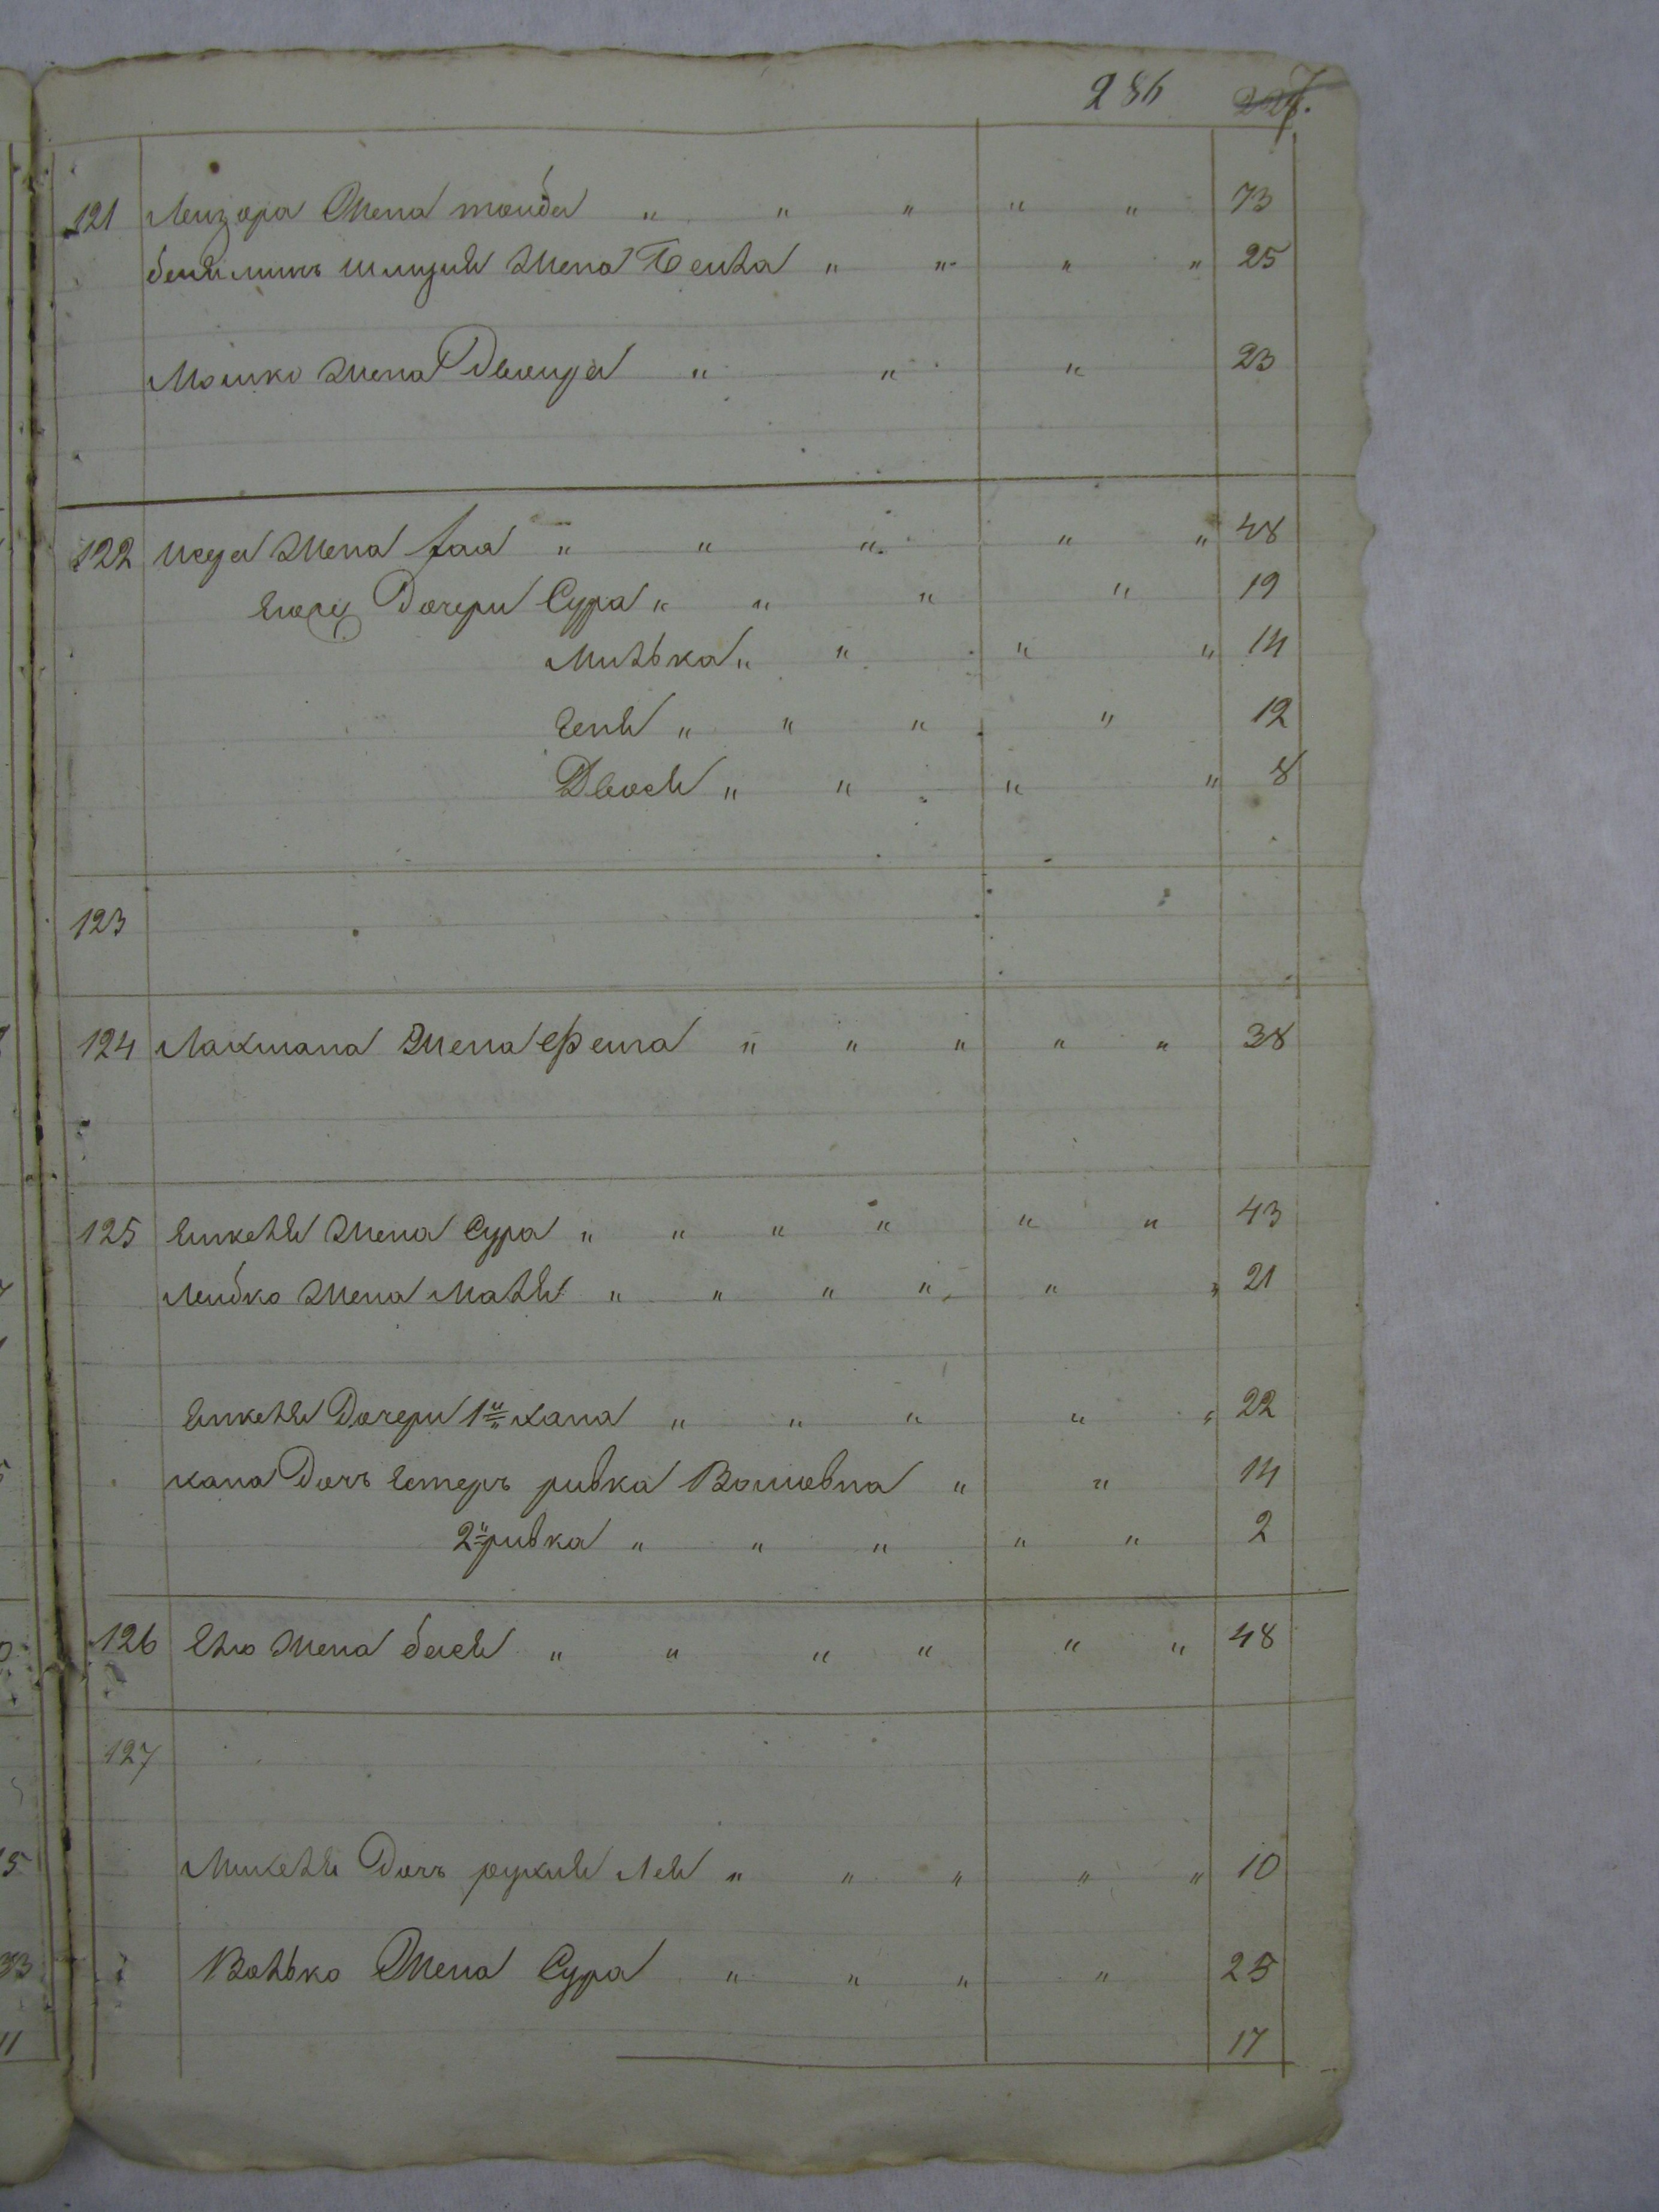 286 227.
121 Лейзора Жена тойба " " " " " 73
беньяминъ шлиомы Жена Бейла " " " " 25
Мошко Жена Двойра " " " 23
122 Исера Жена хая " " " " " 48
Сура " " " " 19
Дочери
Милька " " " " 14
Геня " " " " 12
Двося " " " " 8
123
124 Лахмана Жена Фейга " " " " " 38
125 Янкеля Жена Сура " " " " " " 43
Лейбко Жена Маля " " " " " " 21
Янкеля Дочери 1я хана " " " " " 22
хана Дочь Естеръ ривка " " 14
2я ривка " " " " " 2
126 Елю Жена бася " " " " " " 48
127
Дочь рухля Лея " " " " " 10
Волько Жена Сура " " " " 25
17